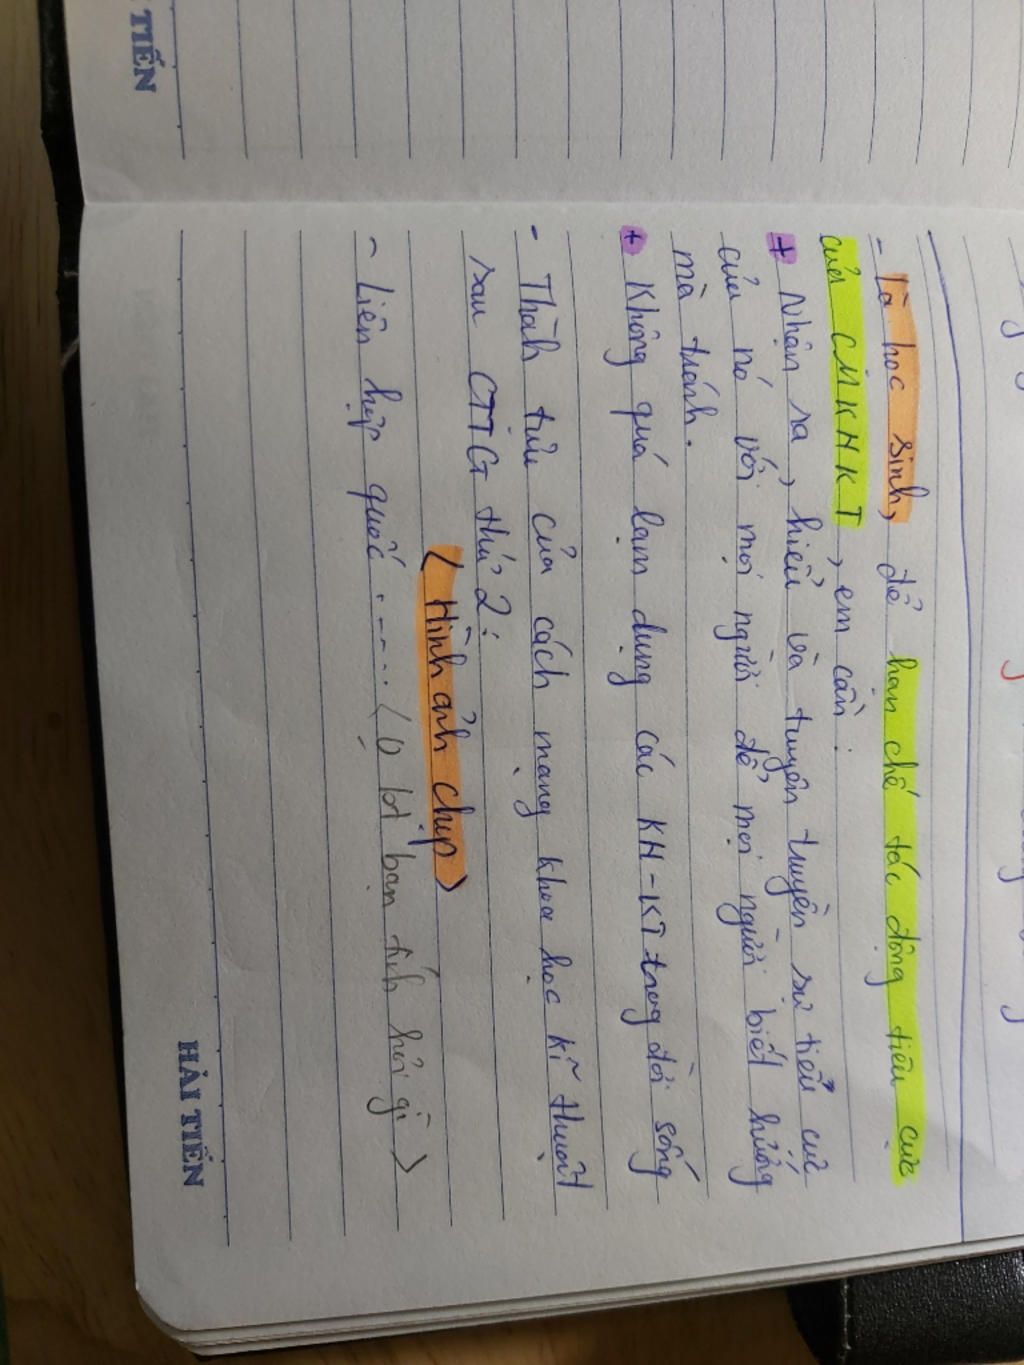 - Là học sinh, để hạn chế tác động tiêu cực
của CMKHKT, em cần:
+ Nhận ra, hiểu và tuyên truyền sự tiêu cực
của nó với mọi người để mọi người biết hướng
mà tránh.
+ Không quá lạm dụng các KH-KT trong đời sống
- Thành tựu của cách mạng khoa học kĩ thuật
sau CTTG thứ 2:
( Hình ảnh chụp)
- Liên hợp quốc ...... ( 0 bt bạn tính hỏi gì )
HẢI TIẾN
TIẾN